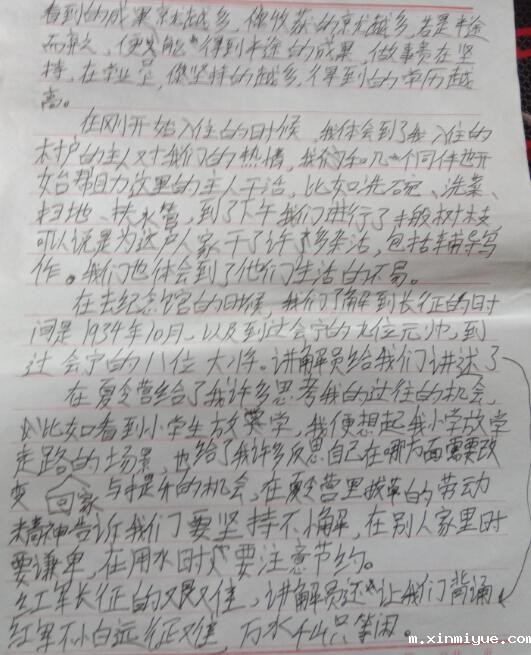 看到的成果就越多，你收获的就越多，若是半途
而弃，便只能得到半途的成果，做事贵在坚
持，在学业里，你坚持的越多，得到的学历越
高。
在刚开始入住的时候，我体会到了我入住的
木户的主人对我们的热情，我们和几个同伴也开
始帮助这里的主人干活，比如洗碗、洗菜、
扫地、扶水管，到了下午我们进行了搬树枝
可以说是为这户人家干了许多杂活，包括辅导写
作。我们也体会到了他们生活的不易。
在去纪念馆的时候，我们了解到长征的时
间是1934年10月，以及到过会宁的九位元帅，到
过会宁的八位大将。讲解员给我们讲述了
在夏令营给了我许多思考我的过往的机会，
比如看到小学生放学，我便想起我小学放学
走路的场景，也给了我许多反思自己在哪方面需要改
变 回家 与提升的机会，在夏令营里拔草的劳动
精神告诉我们要坚持不懈，在别人家里时
要谦卑，在用水时要注意节约。
红军长征的艰难，讲解员还让我们背诵
红军不怕远征难，万水千山只等闲。
m.xinmiyue.com